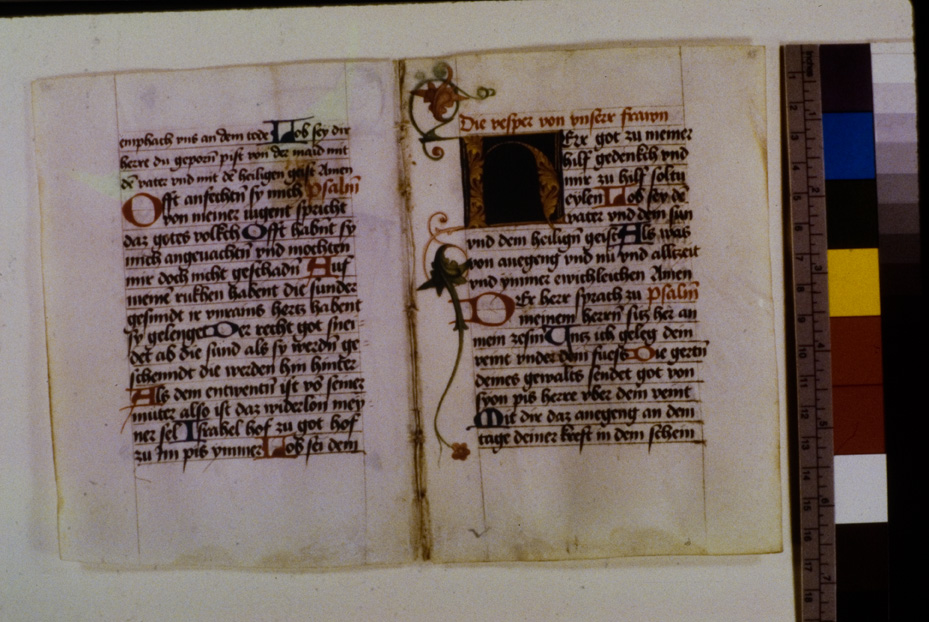 emphach vns an dem tode Lob sey dir
herre du geporn pist von der maid mit
dē vater vnd mit dē heiligen geist Amen
Offt anfechten sy mich Psalm
von meiner iugent spricht
daz gotes volkch Offt habnt sy
mich angeuachten vnd mochten
mir doch nicht geschadn Auf
meine rukhen habent die sunder
gesmidt ir vnrains hertz habent
sy gelenget Der recht got snei
det ab die sund als sy werdn ge
schenndt die werden hin hinter
Als dem entwentn ist vō seiner
muter also ist daz widerlon mey
ner sel Israhel hof zu got hof
zu im pis ymmer Lob sei dem
Die vesper von vnserr frawn
HErr got zu meiner
hilf gedenkch vnd
mir zu hilf soltu
eylen Lob sey dē
vater vnd dem sun
vnd dem heilign geist Als was
von anegeng vnd nu vnd alltzeit
vnd ymmer ewichleichen Amen
DEr herr sprach zu Psalm
meinem herren sitz her an
mein zesm Untz ich geleg dein
veint vnder dein fuess Die gertn
deines gewalts sendet got von
syon pis herre vber dein veint
Mit dir daz anegeng an dem
tage deiner kreft in dem schein